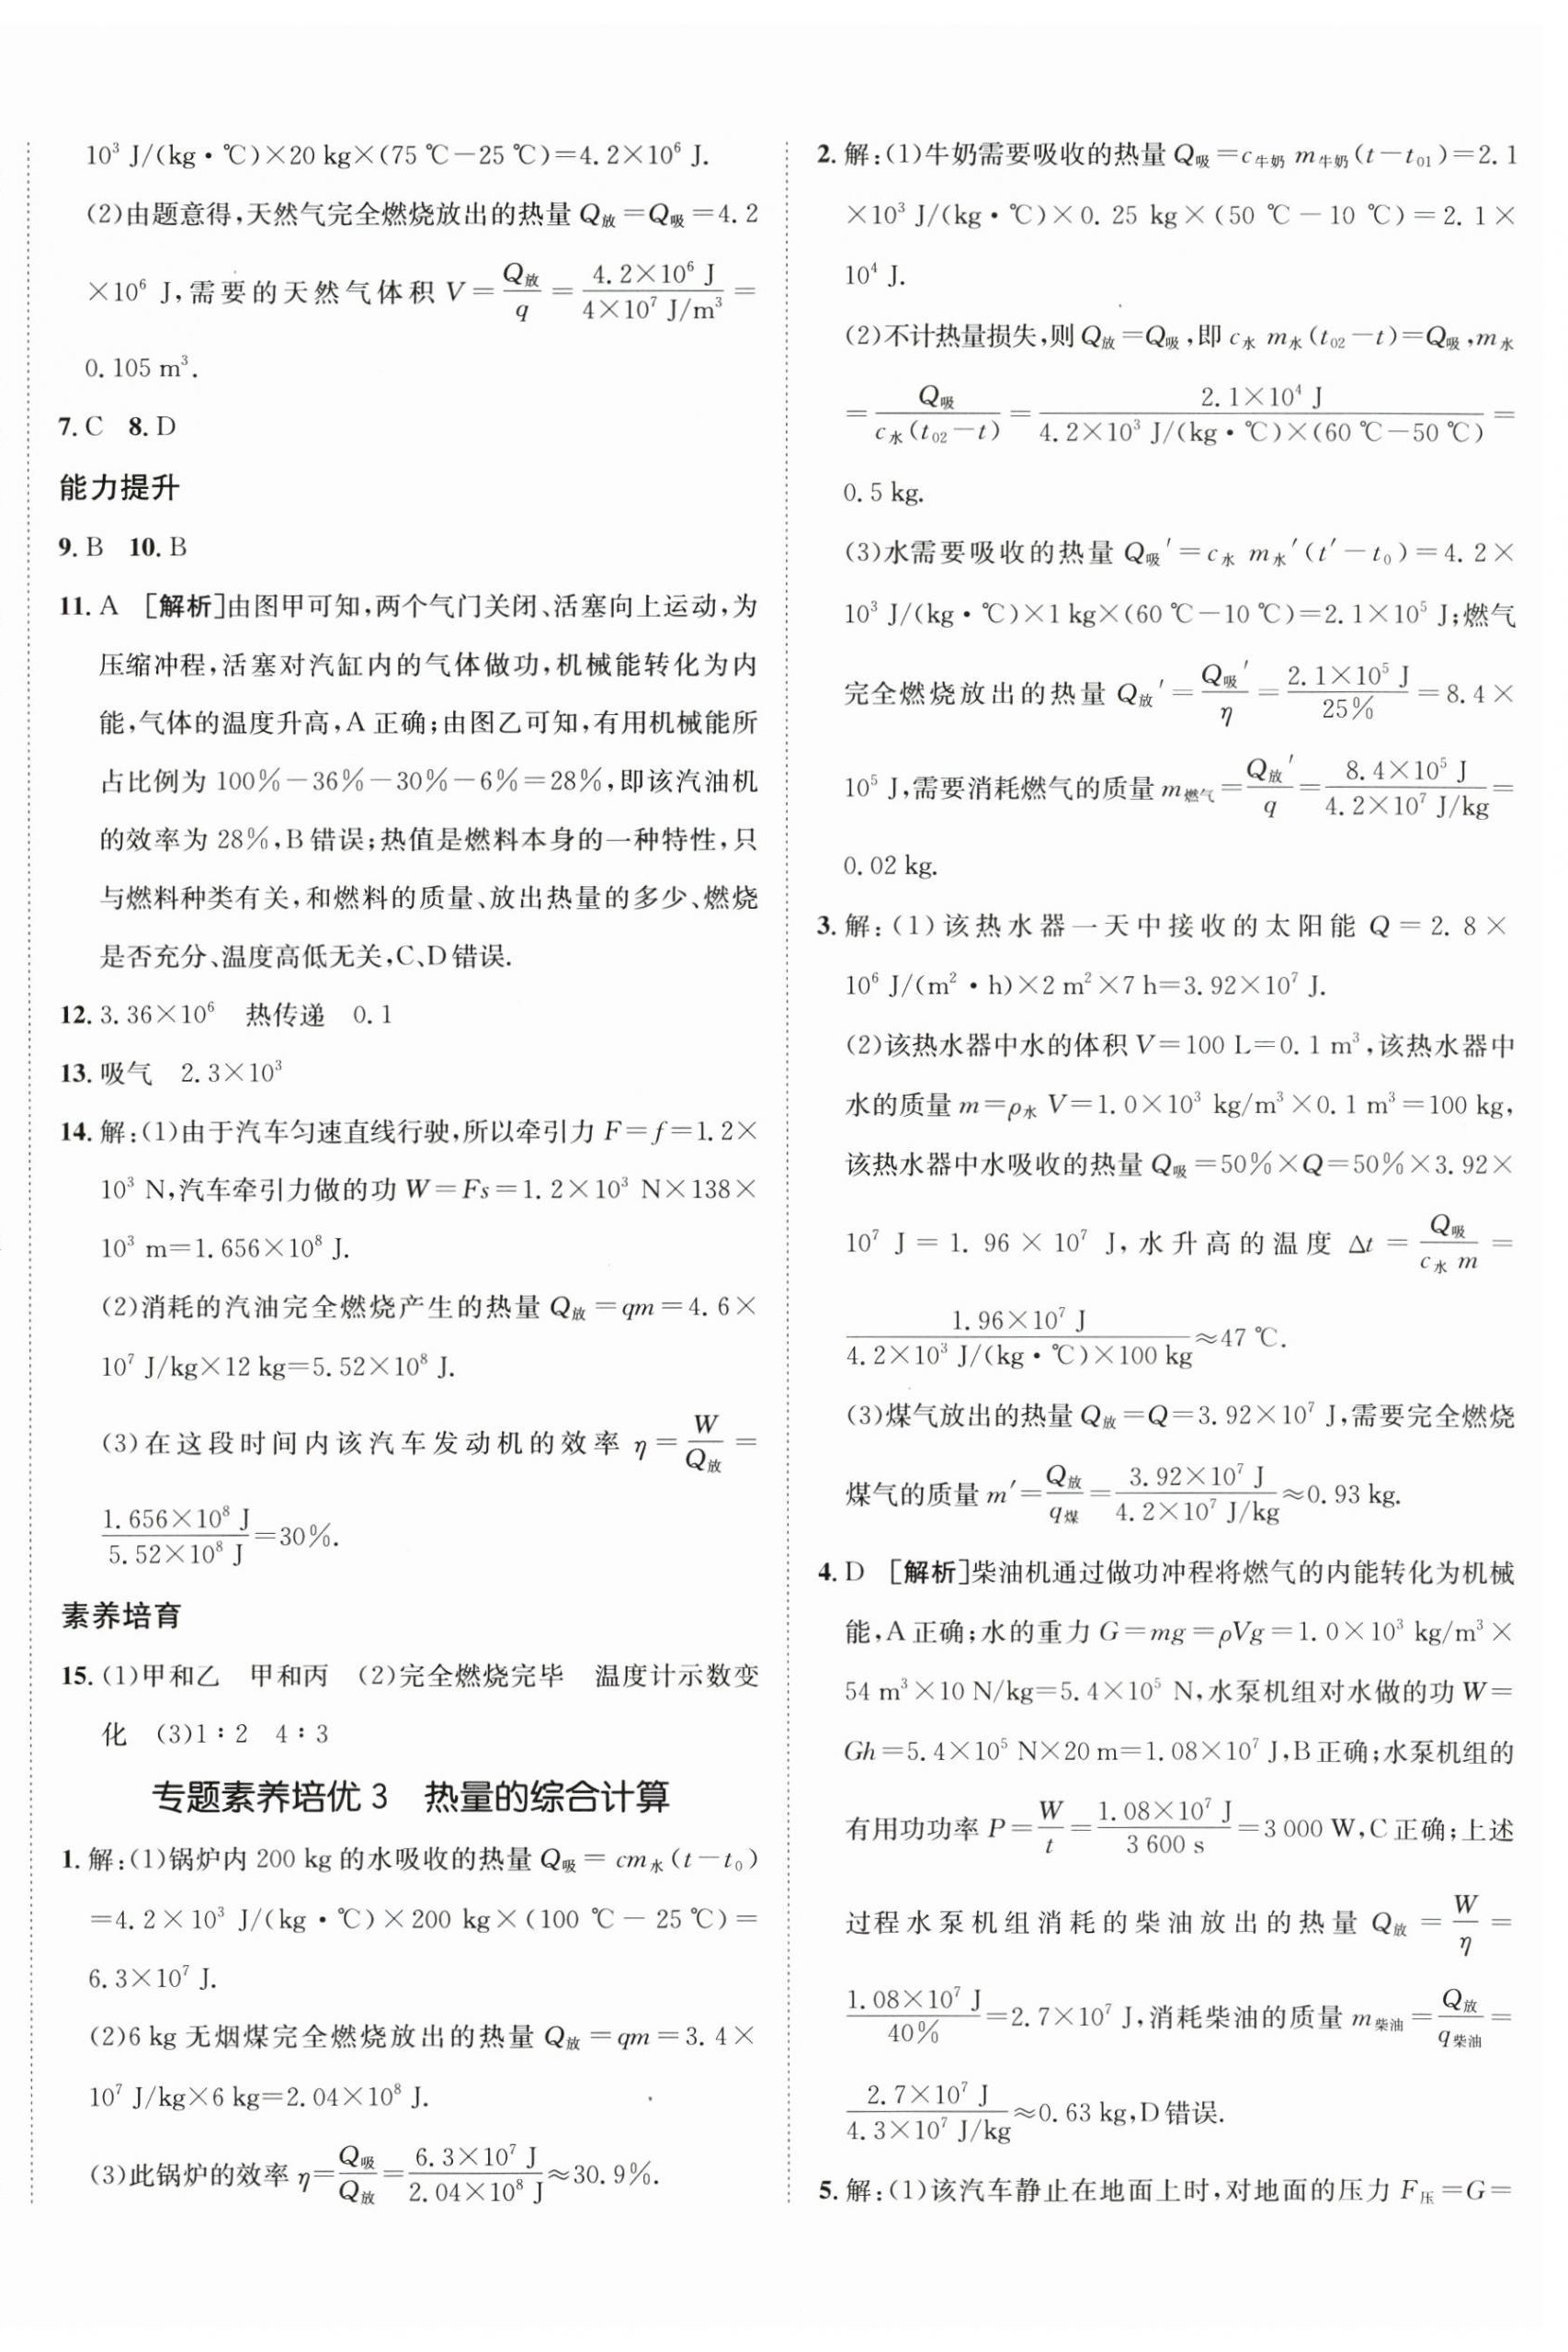 10³ J/(kg·℃)×20 kg×(75 ℃－25 ℃)=4.2×10⁶ J.
(2)由题意得,天然气完全燃烧放出的热量 Q放=Q吸=4.2
×10⁶ J,需要的天然气体积 V=Q放/q=4.2×10⁶ J/4×10⁷ J/m³=
0.105 m³.
7.C 8.D
能力提升
9.B 10.B
11.A [解析]由图甲可知,两个气门关闭、活塞向上运动,为
压缩冲程,活塞对汽缸内的气体做功,机械能转化为内
能,气体的温度升高,A正确;由图乙可知,有用机械能所
占比例为 100%－36%－30%－6%=28%,即该汽油机
的效率为 28%,B错误;热值是燃料本身的一种特性,只
与燃料种类有关,和燃料的质量、放出热量的多少、燃烧
是否充分、温度高低无关,C、D错误.
12.3.36×10⁶ 热传递 0.1
13.吸气 2.3×10³
14.解:(1)由于汽车匀速直线行驶,所以牵引力 F=f=1.2×
10³ N,汽车牵引力做的功 W=Fs=1.2×10³ N×138×
10³ m=1.656×10⁸ J.
(2)消耗的汽油完全燃烧产生的热量 Q放=qm=4.6×
10⁷ J/kg×12 kg=5.52×10⁸ J.
(3)在这段时间内该汽车发动机的效率 η=W/Q放=
1.656×10⁸ J/5.52×10⁸ J=30%.
素养培育
15.(1)甲和乙 甲和丙 (2)完全燃烧完毕 温度计示数变
化 (3)1∶2 4∶3
专题素养培优3 热量的综合计算
1.解:(1)锅炉内 200 kg 的水吸收的热量 Q吸=cm水(t－t₀)
=4.2×10³ J/(kg·℃)×200 kg×(100 ℃－25 ℃)=
6.3×10⁷ J.
(2)6 kg 无烟煤完全燃烧放出的热量 Q放=qm=3.4×
10⁷ J/kg×6 kg=2.04×10⁸ J.
(3)此锅炉的效率 η=Q吸/Q放=6.3×10⁷ J/2.04×10⁸ J≈30.9%.
2.解:(1)牛奶需要吸收的热量 Q吸=c牛奶 m牛奶(t－t₀₁)=2.1
×10³ J/(kg·℃)×0.25 kg×(50 ℃－10 ℃)=2.1×
10⁴ J.
(2)不计热量损失,则 Q放=Q吸,即 c水 m水(t₀₂－t)=Q吸,m水
=Q吸/c水(t₀₂－t)=2.1×10⁴ J/4.2×10³ J/(kg·℃)×(60 ℃－50 ℃)=
0.5 kg.
(3)水需要吸收的热量 Q吸′=c水 m水′(t′－t₀)=4.2×
10³ J/(kg·℃)×1 kg×(60 ℃－10 ℃)=2.1×10⁵ J;燃气
完全燃烧放出的热量 Q放′=Q吸′/η=2.1×10⁵ J/25%=8.4×
10⁵ J,需要消耗燃气的质量 m燃气=Q放′/q=8.4×10⁵ J/4.2×10⁷ J/kg=
0.02 kg.
3.解:(1)该热水器一天中接收的太阳能 Q=2.8×
10⁶ J/(m²·h)×2 m²×7 h=3.92×10⁷ J.
(2)该热水器中水的体积 V=100 L=0.1 m³,该热水器中
水的质量 m=ρ水 V=1.0×10³ kg/m³×0.1 m³=100 kg,
该热水器中水吸收的热量 Q吸=50%×Q=50%×3.92×
10⁷ J=1.96×10⁷ J,水升高的温度 Δt=Q吸/c水 m=
1.96×10⁷ J/4.2×10³ J/(kg·℃)×100 kg≈47 ℃.
(3)煤气放出的热量 Q放=Q=3.92×10⁷ J,需要完全燃烧
煤气的质量 m′=Q放/q煤=3.92×10⁷ J/4.2×10⁷ J/kg≈0.93 kg.
4.D [解析]柴油机通过做功冲程将燃气的内能转化为机械
能,A正确;水的重力 G=mg=ρVg=1.0×10³ kg/m³×
54 m³×10 N/kg=5.4×10⁵ N,水泵机组对水做的功 W=
Gh=5.4×10⁵ N×20 m=1.08×10⁷ J,B正确;水泵机组的
有用功功率 P=W/t=1.08×10⁷ J/3 600 s=3 000 W,C正确;上述
过程水泵机组消耗的柴油放出的热量 Q放=W/η=
1.08×10⁷ J/40%=2.7×10⁷ J,消耗柴油的质量 m柴油=Q放/q柴油=
2.7×10⁷ J/4.3×10⁷ J/kg≈0.63 kg,D错误.
5.解:(1)该汽车静止在地面上时,对地面的压力 F压=G=